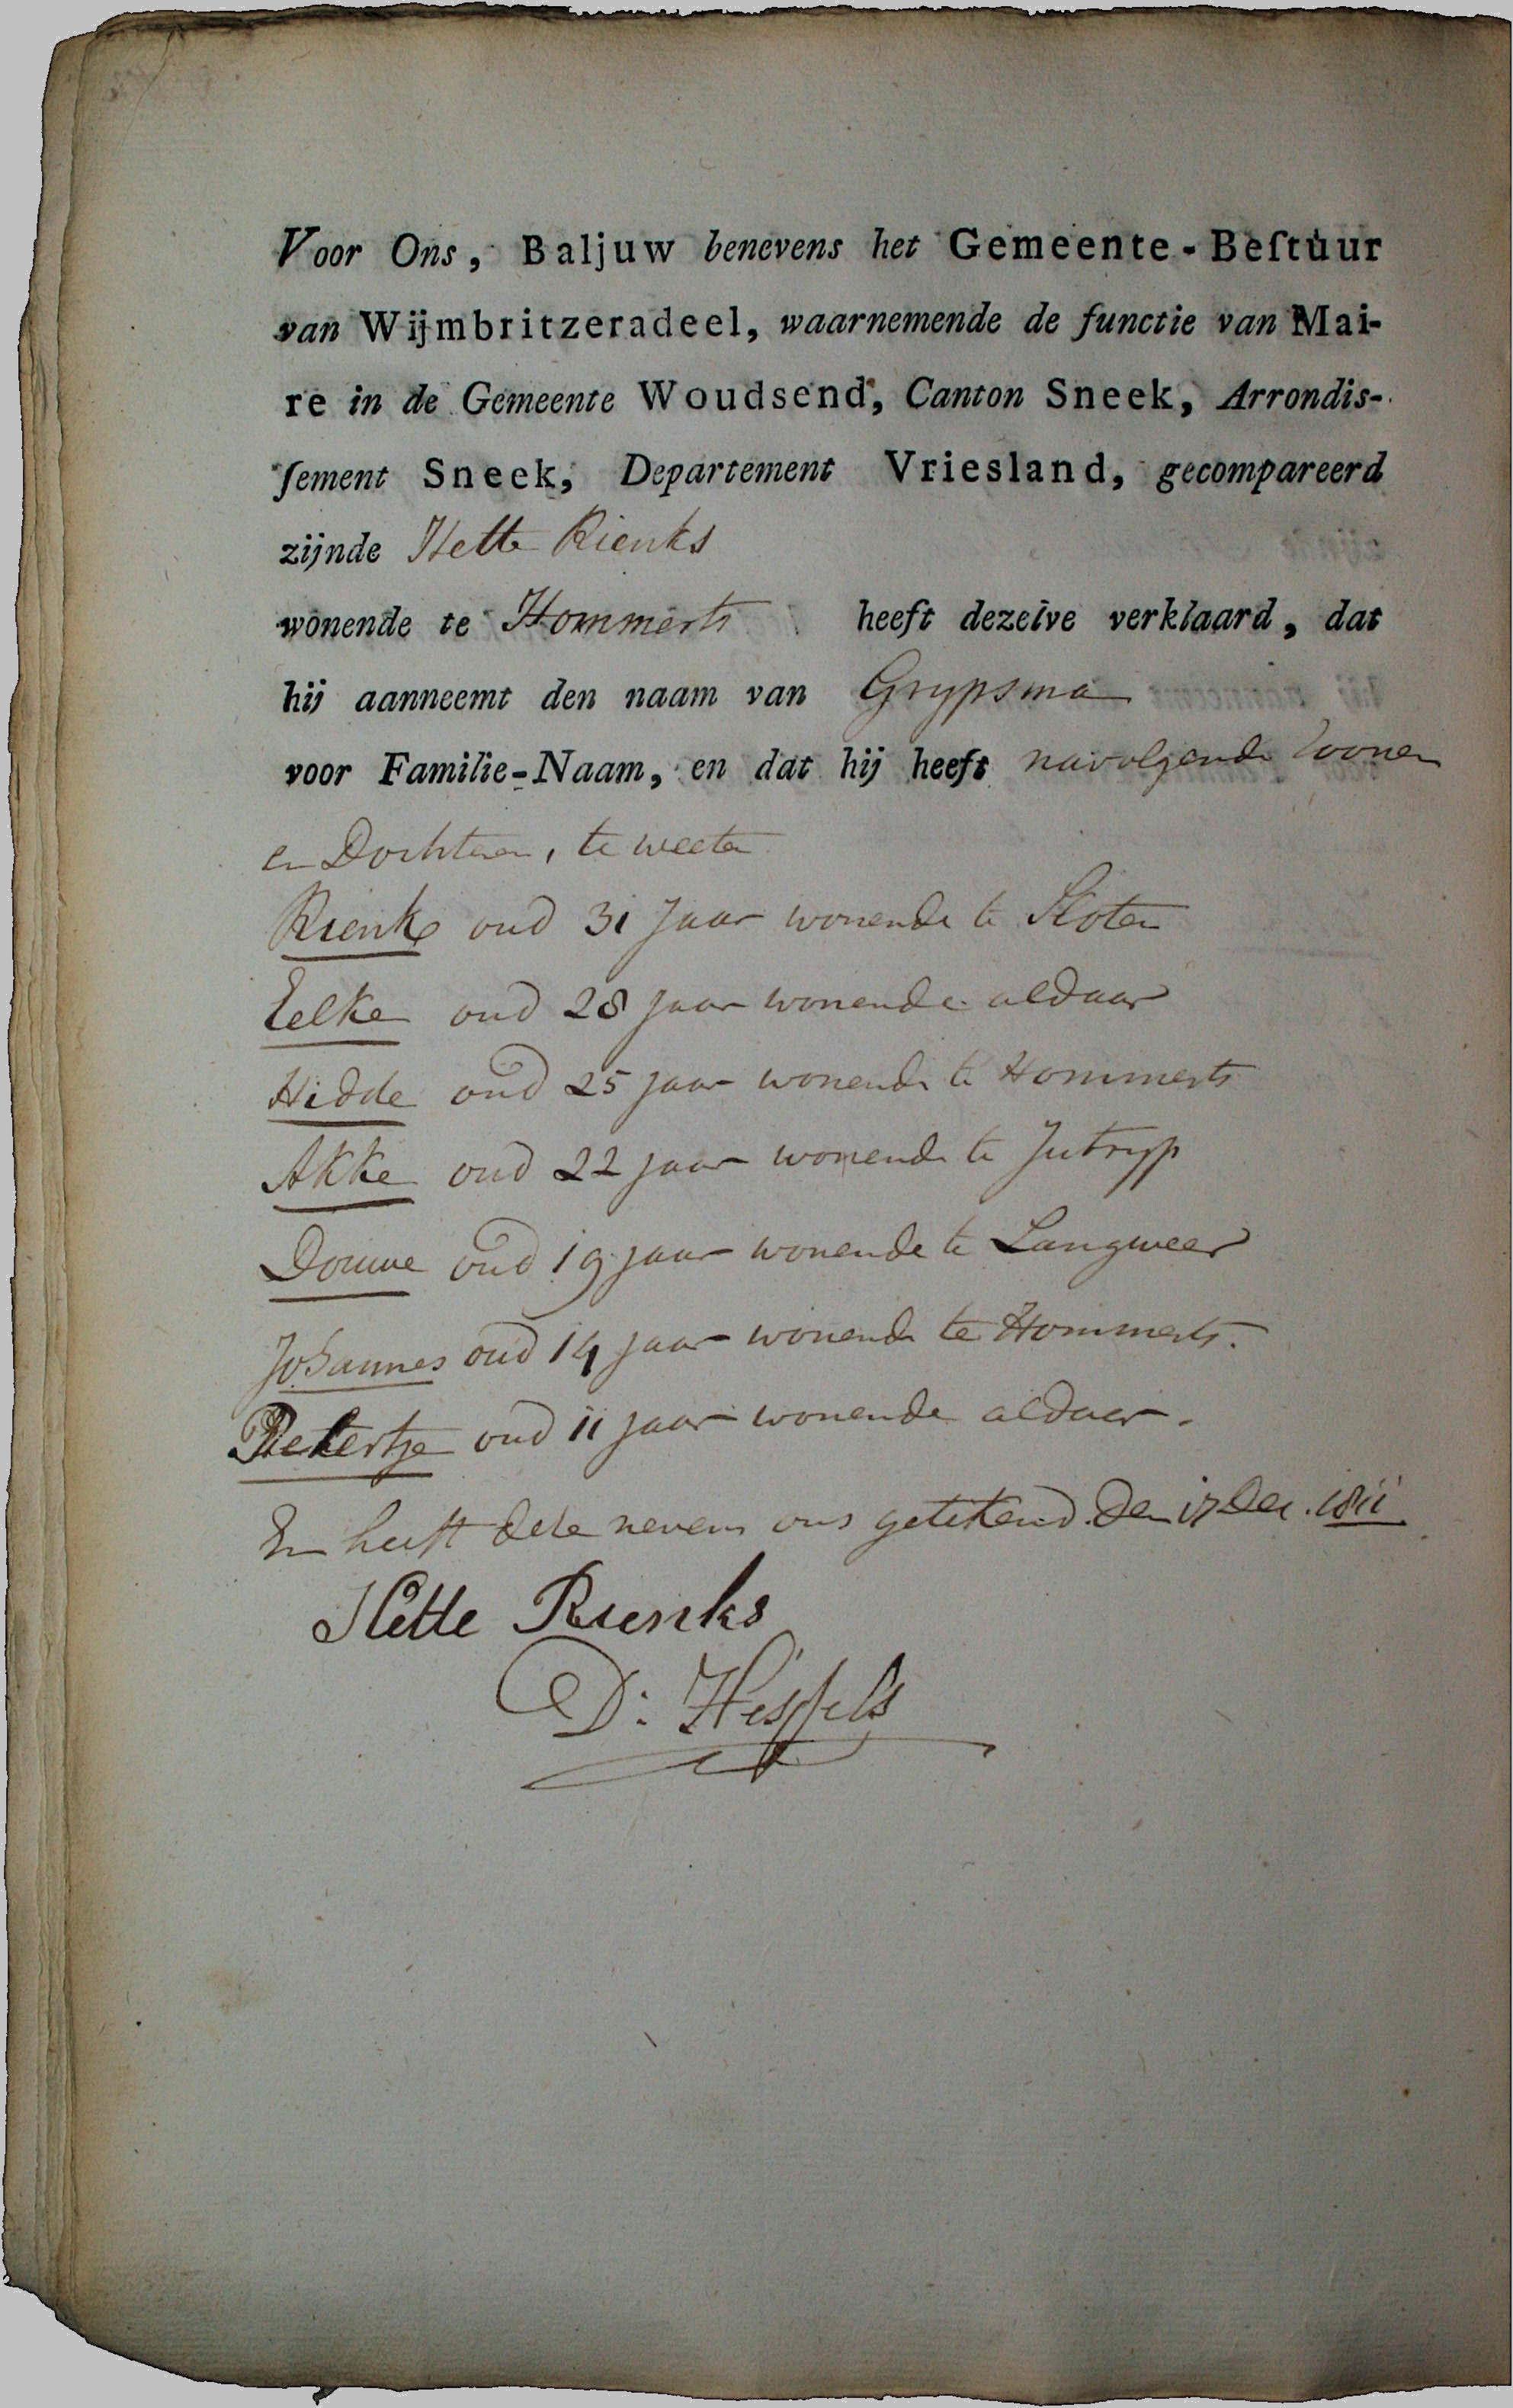 Voor Ons, Baljuw benevens het Gemeente-Beſtuur
van Wijmbritzeradeel, waarnemende de functie van Mai-
re in de Gemeente Woudsend, Canton Sneek, Arrondis-
ſement Sneek, Departement Vriesland, gecompareerd
zijnde Hette Rienks
wonende te Hommerts heeft dezelve verklaard, dat
hij aanneemt den naam van Grypsma
voor Familie-Naam, en dat hij heeft navolgende Zoonen
en Dochteren, te weeten
Rienk oud 31 Jaar wonende te Sloten
Eelke oud 28 jaar wonende aldaar
Hidde oud 25 jaar wonende te Hommerts
Akke oud 22 jaar wonende te Jutryp
Douwe oud 19 jaar wonende te Langweer
Johannes oud 14 jaar wonende te Hommerts.
Pietertje oud 11 jaar wonende aldaar.
En heeft deze nevens ons getekend. den 17 Dec. 1811
Hette Rienks
D: Hessels